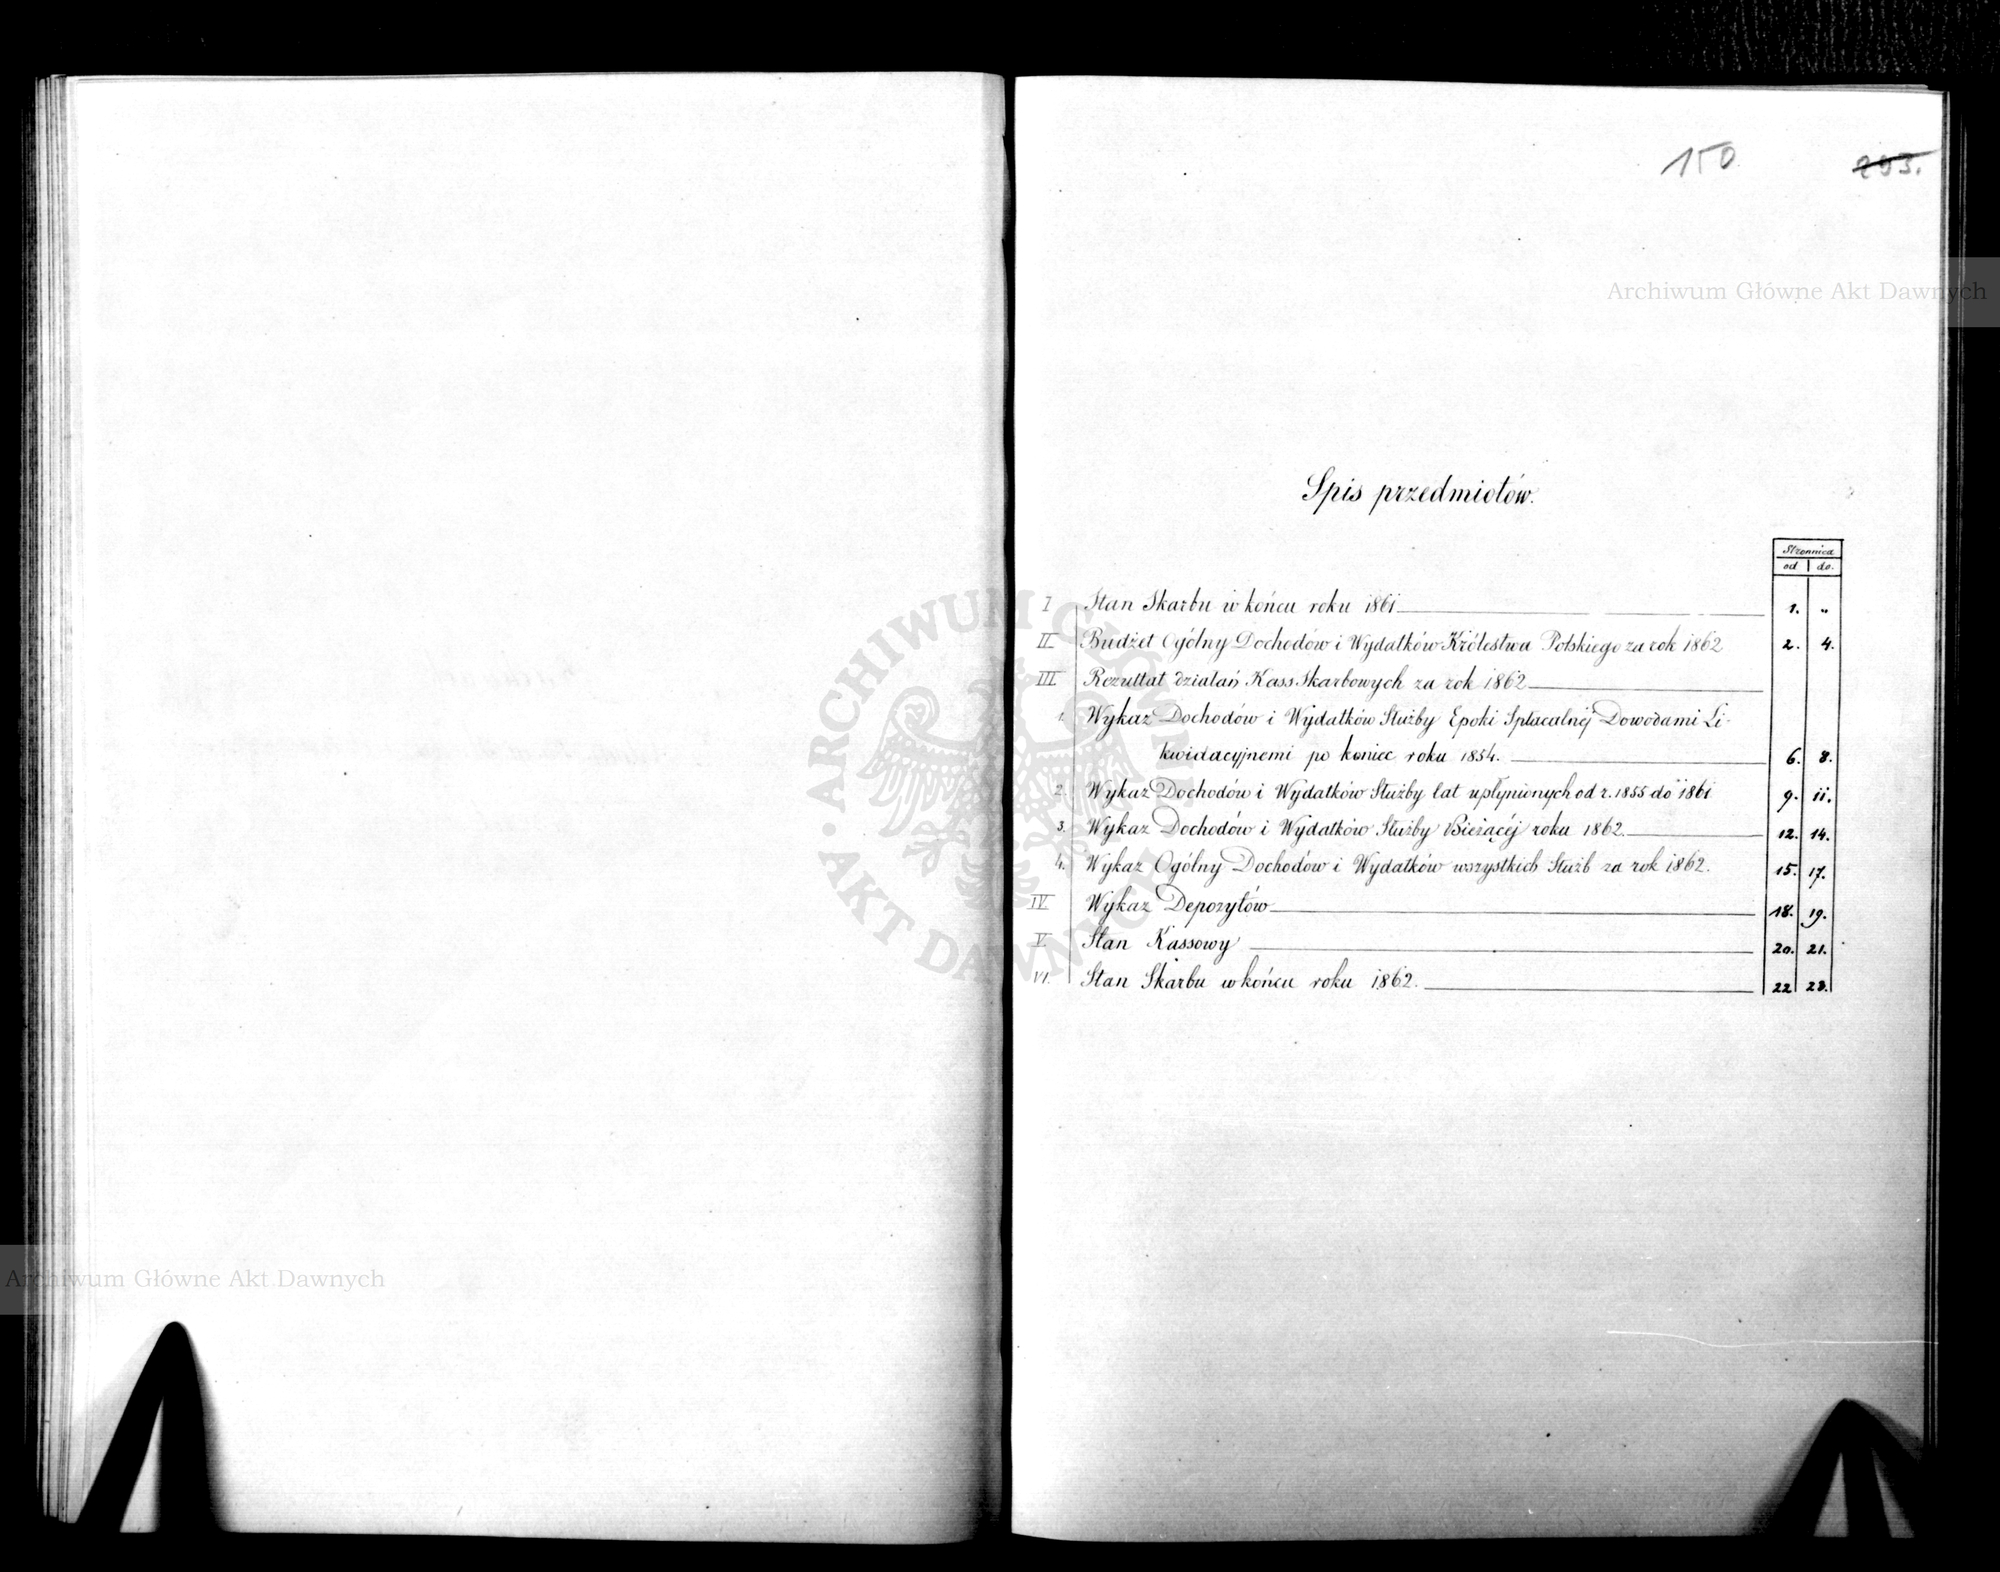 150
293.
Archiwum Główne Akt Dawnych
Spis przedmiotów.
Stronnica
od do.
I Stan Skarbu w końcu roku 1861 1. „
II Budżet Ogólny Dochodów i Wydatków Królestwa Polskiego za rok 1862 2. 4.
III Rezultat działań Kass Skarbowych za rok 1862
1. Wykaz Dochodów i Wydatków Służby Epoki Spłacalnéj Dowodami Li-
kwidacyjnemi po koniec roku 1854. 6. 8.
2. Wykaz Dochodów i Wydatków Służby lat upłynionych od r. 1855 do 1861 9. 11.
3. Wykaz Dochodów i Wydatków Służby Bieżącéj roku 1862 12. 14.
4. Wykaz Ogólny Dochodów i Wydatków wszystkich Służb za rok 1862. 15. 17.
IV Wykaz Depozytów 18. 19.
V. Stan Kassowy 20. 21.
VI. Stan Skarbu w końcu roku 1862. 22 23.
ARCHIWUM GŁÓWNE AKT DAWNYCH
Archiwum Główne Akt Dawnych